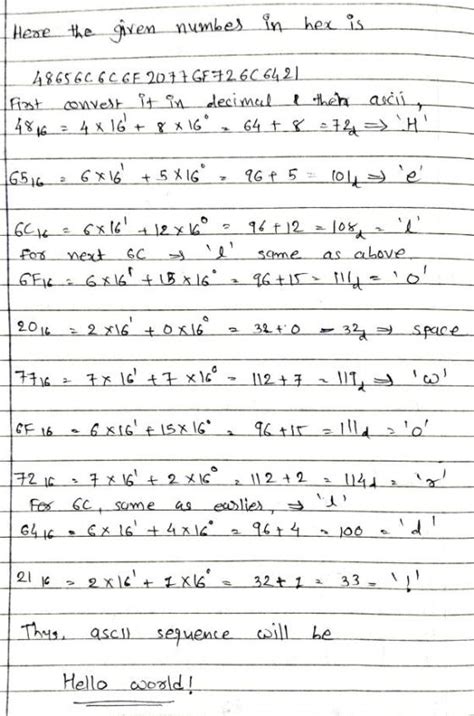 Here the given number in hex is
48656C6C6F20776F726C6421
First convert it in decimal & then ascii,
48₁₆ = 4×16¹ + 8×16⁰ = 64 + 8 = 72d ⇒ 'H'
65₁₆ = 6×16¹ + 5×16⁰ = 96 + 5 = 101d ⇒ 'e'
6C₁₆ = 6×16¹ + 12×16⁰ = 96 + 12 = 108d = 'l'
For next 6C ⇒ 'l' same as above
6F₁₆ = 6×16¹ + 15×16⁰ = 96 + 15 = 111d = 'o'
20₁₆ = 2×16¹ + 0×16⁰ = 32 + 0 = 32d ⇒ space
77₁₆ = 7×16¹ + 7×16⁰ = 112 + 7 = 119d ⇒ 'w'
6F₁₆ = 6×16¹ + 15×16⁰ = 96 + 15 = 111d = 'o'
72₁₆ = 7×16¹ + 2×16⁰ = 112 + 2 = 114d = 'r'
For 6C, same as earlier, ⇒ 'l'
64₁₆ = 6×16¹ + 4×16⁰ = 96 + 4 = 100 = 'd'
21₁₆ = 2×16¹ + 1×16⁰ = 32 + 1 = 33 = '!'
Thus, ascii sequence will be
Hello world!